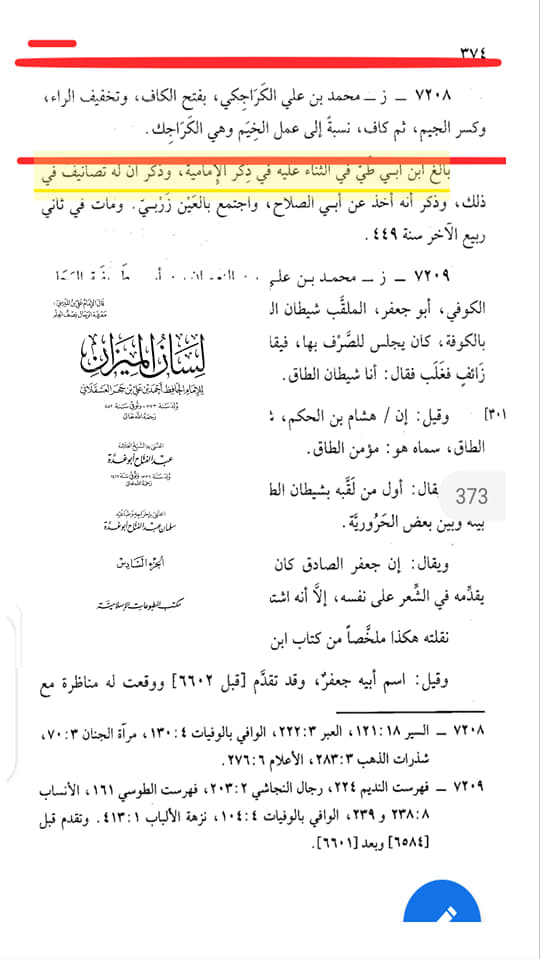 ٣٧٤
٧٢٠٨ ــ ز ــ محمد بن علي الكَرَاجِكي، بفتح الكاف، وتخفيف الراء،
وكسر الجيم، ثم كاف، نسبةً إلى عمل الخِيَم وهي الكَرَاجِك.
بالغ ابن أبي طَيّ في الثناء عليه في ذِكر الإِمامية، وذكر أن له تصانيف في
ذلك، وذكر أنه أخذ عن أبي الصلاح، واجتمع بالعَيْن زَرْبـيّ. ومات في ثاني
ربيع الآخر سنة ٤٤٩.
٧٢٠٩ ــ ز ــ محمد بن علي بن النعمان بن أبـي
الكوفي، أبو جعفر، الملقَّب شيطان
بالكوفة، كان يجلس للصَّرْف بها، فيقا
زَائفٍ فغَلَب فقال: أنا شيطان الطاق.
[٣٠١
وقيل: إن / هشام بن الحكم،
الطاق، سماه هو: مؤمن الطاق.
يقال: أول من لَقَّبه بشيطان الط
بينه وبين بعض الحَرُوريَّة.
ويقال: إن جعفر الصادق كان
يقدِّمه في الشِّعر على نفسه، إلَّا أنه اشتـ
نقلته هكذا ملخَّصاً من كتاب ابن
وقيل: اسم أبيه جعفرٌ، وقد تقدَّم [قبل ٦٦٠٢] ووقعت له مناظرة مع
لسان الميزان
للإمام الحافظ أحمد بن علي بن حجر العسقلاني
ولد سنة ٧٧٣، وتوفي سنة ٨٥٢
رحمه الله تعالى
اعتنى به الشيخ العلامة
عبد الفتاح أبو غدة
ولد سنة ١٣٣٦ وتوفي سنة ١٤١٧
رحمه الله تعالى
سلمان عبد الفتاح أبو غدة
الجزء السادس
مكتب المطبوعات الإسلامية
373
٧٢٠٨ ــ السير ١٨: ١٢١، العبر ٣: ٢٢٢، الوافي بالوفيات ٤: ١٣٠، مرآة الجنان ٣: ٧٠،
شذرات الذهب ٣: ٢٨٣، الأعلام ٦: ٢٧٦.
٧٢٠٩ ــ فهرست النديم ٢٢٤، رجال النجاشي ٢: ٢٠٣، فهرست الطوسي ١٦١، الأنساب
٨: ٢٣٨ و ٢٣٩، الوافي بالوفيات ٤: ١٠٤، نزهة الألباب ١: ٤١٣. وتقدم قبل
[٦٥٨٤] وبعد [٦٦٠١].